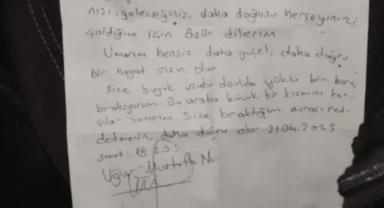 nızı, geleceğiniz, daha doğusu herşeyinizi
çaldığım için özür dilerim
Umarım bensiz daha güzel, daha doğru
bir hayat sizin olur
Size büyük üzüntü yüklü bir borç
bırakıyorum. Bu araba küçük bir kısmını kar-
şılar sanırım. Size bıraktığım mirası red-
detmeniz daha doğru olur. 21.04.2025
saat: 18:20
Uğur Mustafa N.